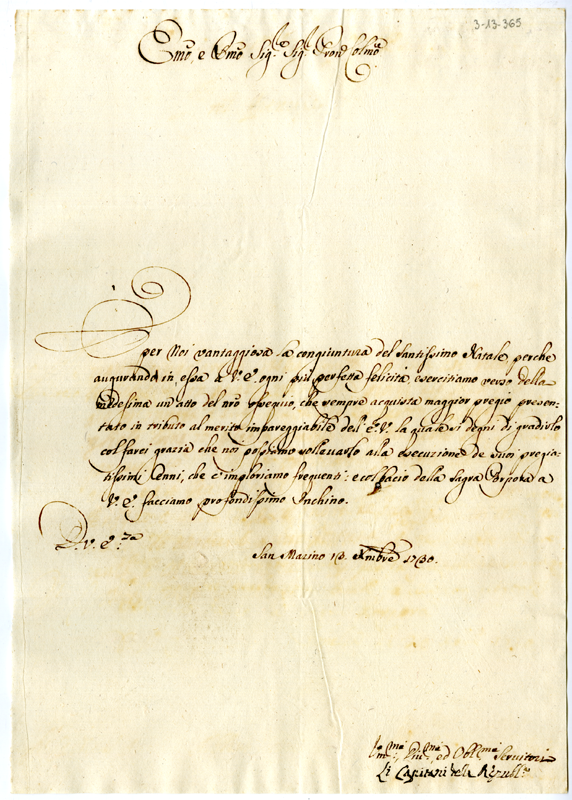 3-13-365
Emo, e Rmo Sig.r Sig.r Pron Colmo
È per Noi vantaggiosa la congiuntura del Santissimo Natale, perche
augurando in essa a V.E. ogni più perfetta felicità, esercitiamo verso della
medesima un atto del nro ossequio, che sempre acquista maggior pregio presen=
tato in tributo al merito impareggiabile dell' E.V. la quale si degni di gradirlo
col farci grazia che noi possiamo sollevarlo alla esecuzione de suoi pregia=
tissimi Cenni, che c'imploriamo frequenti: e col bacio della Sagra Porpora a
V.E. facciamo profondissimo Inchino.
D. V. E.za
San Marino Xmbre 1730.
ed Obblmi Servitori
Li Capitani della Republ.a